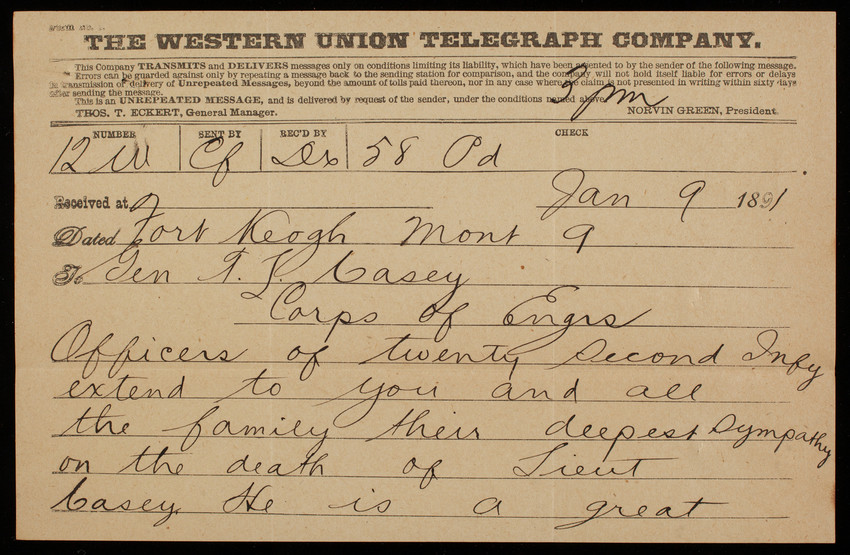 THE WESTERN UNION TELEGRAPH COMPANY.
This Company TRANSMITS and DELIVERS messages only on conditions limiting its liability, which have been assented to by the sender of the following message.
Errors can be guarded against only by repeating a message back to the sending station for comparison, and the company will not hold itself liable for errors or delays
in transmission or delivery of Unrepeated Messages, beyond the amount of tolls paid thereon, nor in any case where the claim is not presented in writing within sixty days
after sending the message.
This is an UNREPEATED MESSAGE, and is delivered by request of the sender, under the conditions named above.
pm
THOS. T. ECKERT, General Manager. NORVIN GREEN, President.
NUMBER SENT BY REC'D BY CHECK
12 W Cf Ds 58 Pd
Received at Jan 9 1891
Dated Fort Keogh Mont 9
To Gen T. L. Casey
Corps of Engrs
Officers of twenty second Infy
extend to you and all
the family their deepest sympathy
on the death of Lieut
Casey. He is a great